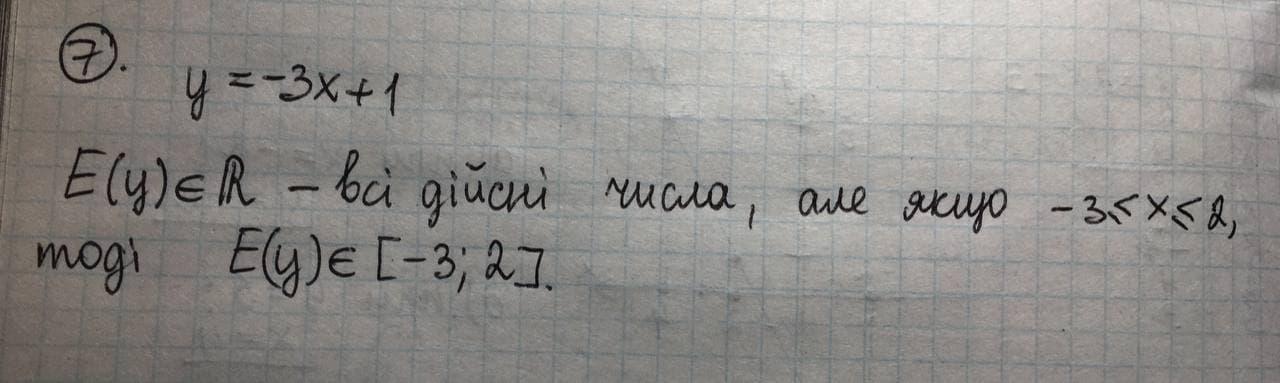 7.
y = -3x + 1
E(y) ∈ ℝ – всі дійсні числа, але якщо -3 ≤ x ≤ 2,
тоді E(y) ∈ [-3; 2].